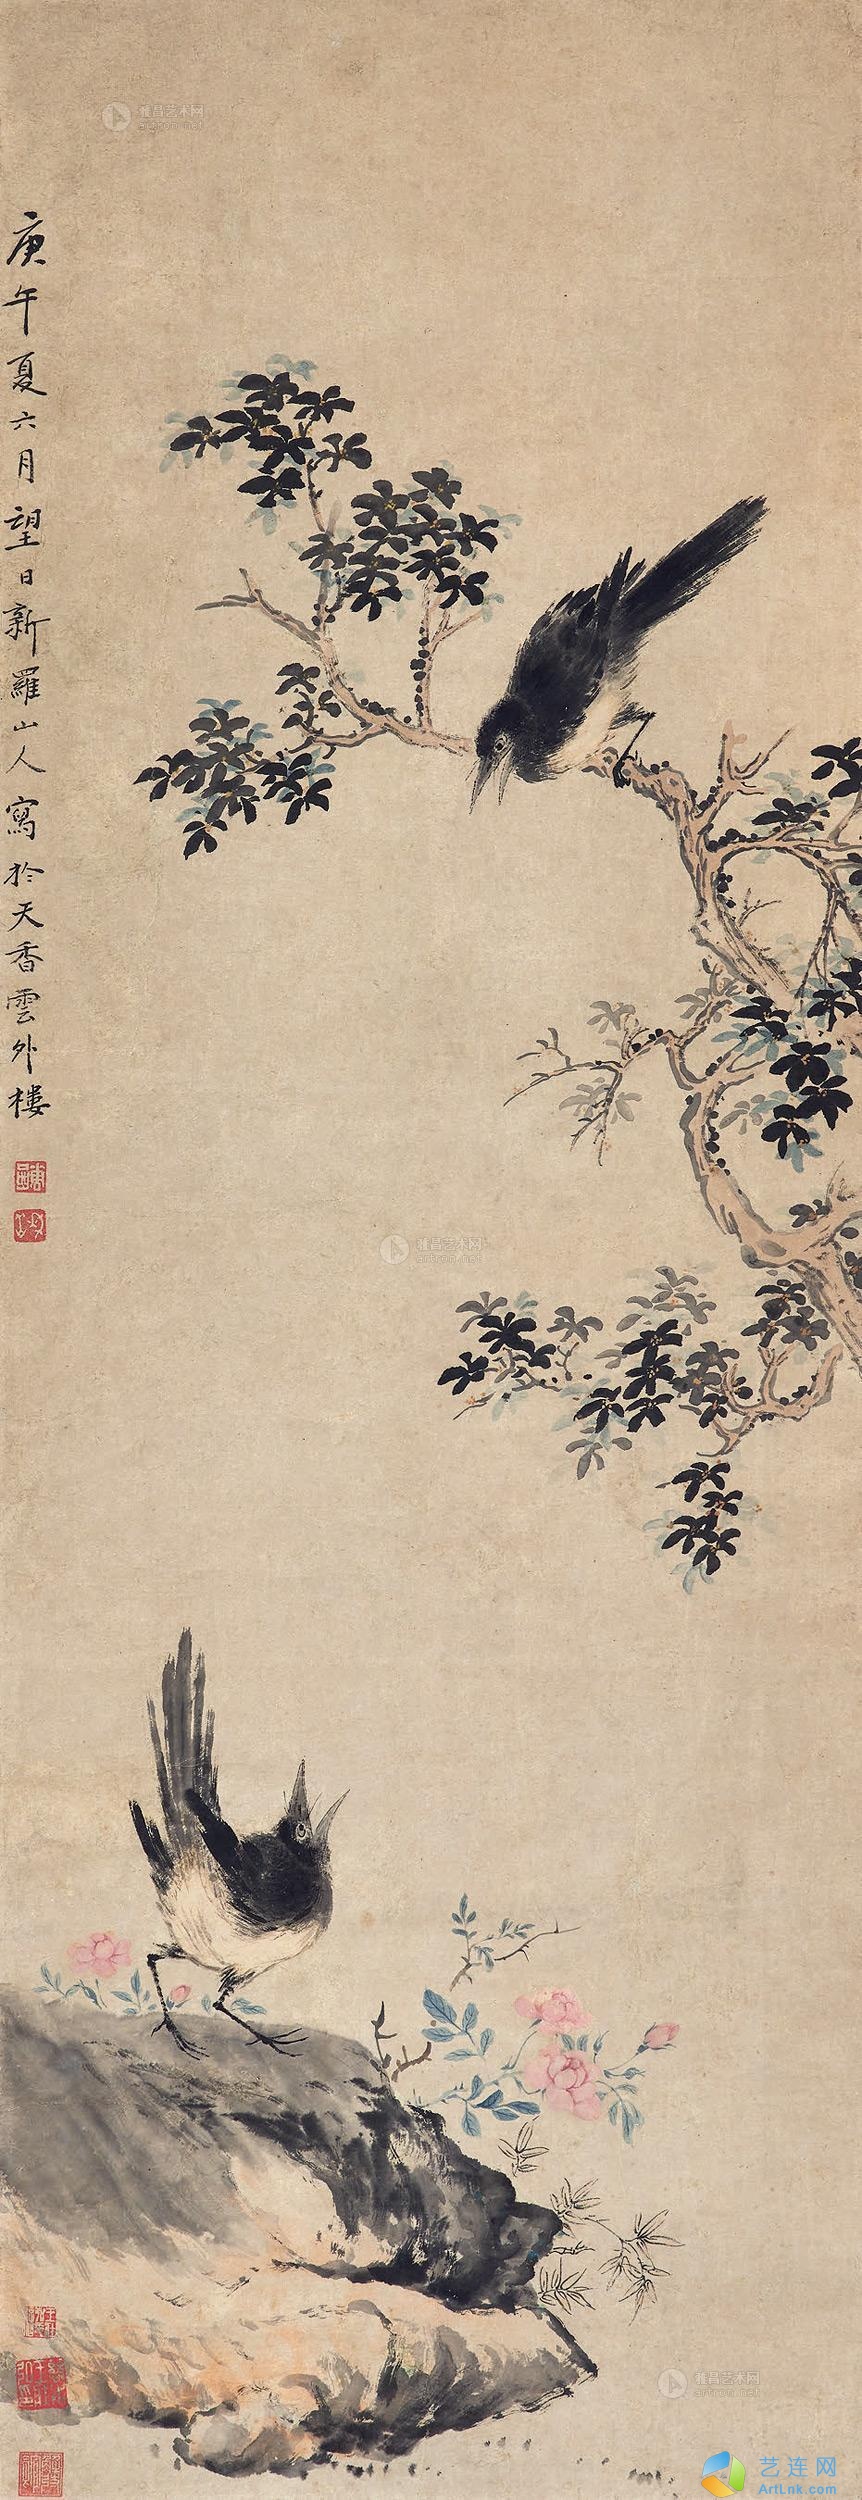 雅昌艺术网
artron.net
庚午夏六月望日新羅山人寫於天香雲外樓
雅昌艺术网
artron.net
雅昌艺术网
artron.net
艺连网
ArtLnk.com